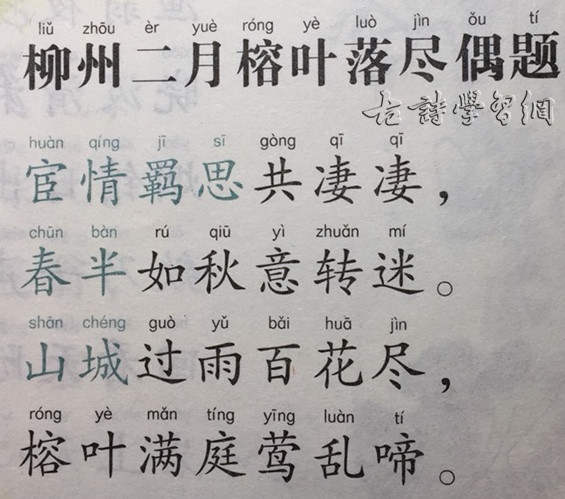 liǔ zhōu èr yuè róng yè luò jìn ǒu tí
柳州二月榕叶落尽偶题
古詩學習網
huàn qíng jī sī gòng qī qī
宦情羁思共凄凄，
chūn bàn rú qiū yì zhuǎn mí
春半如秋意转迷。
shān chéng guò yǔ bǎi huā jìn
山城过雨百花尽，
róng yè mǎn tíng yīng luàn tí
榕叶满庭莺乱啼。